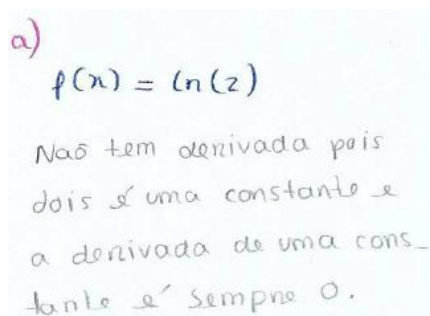 a)
f(x) = ln(2)
Naõ tem derivada pois
dois é uma constante e
a derivada de uma cons-
tante é sempre 0.